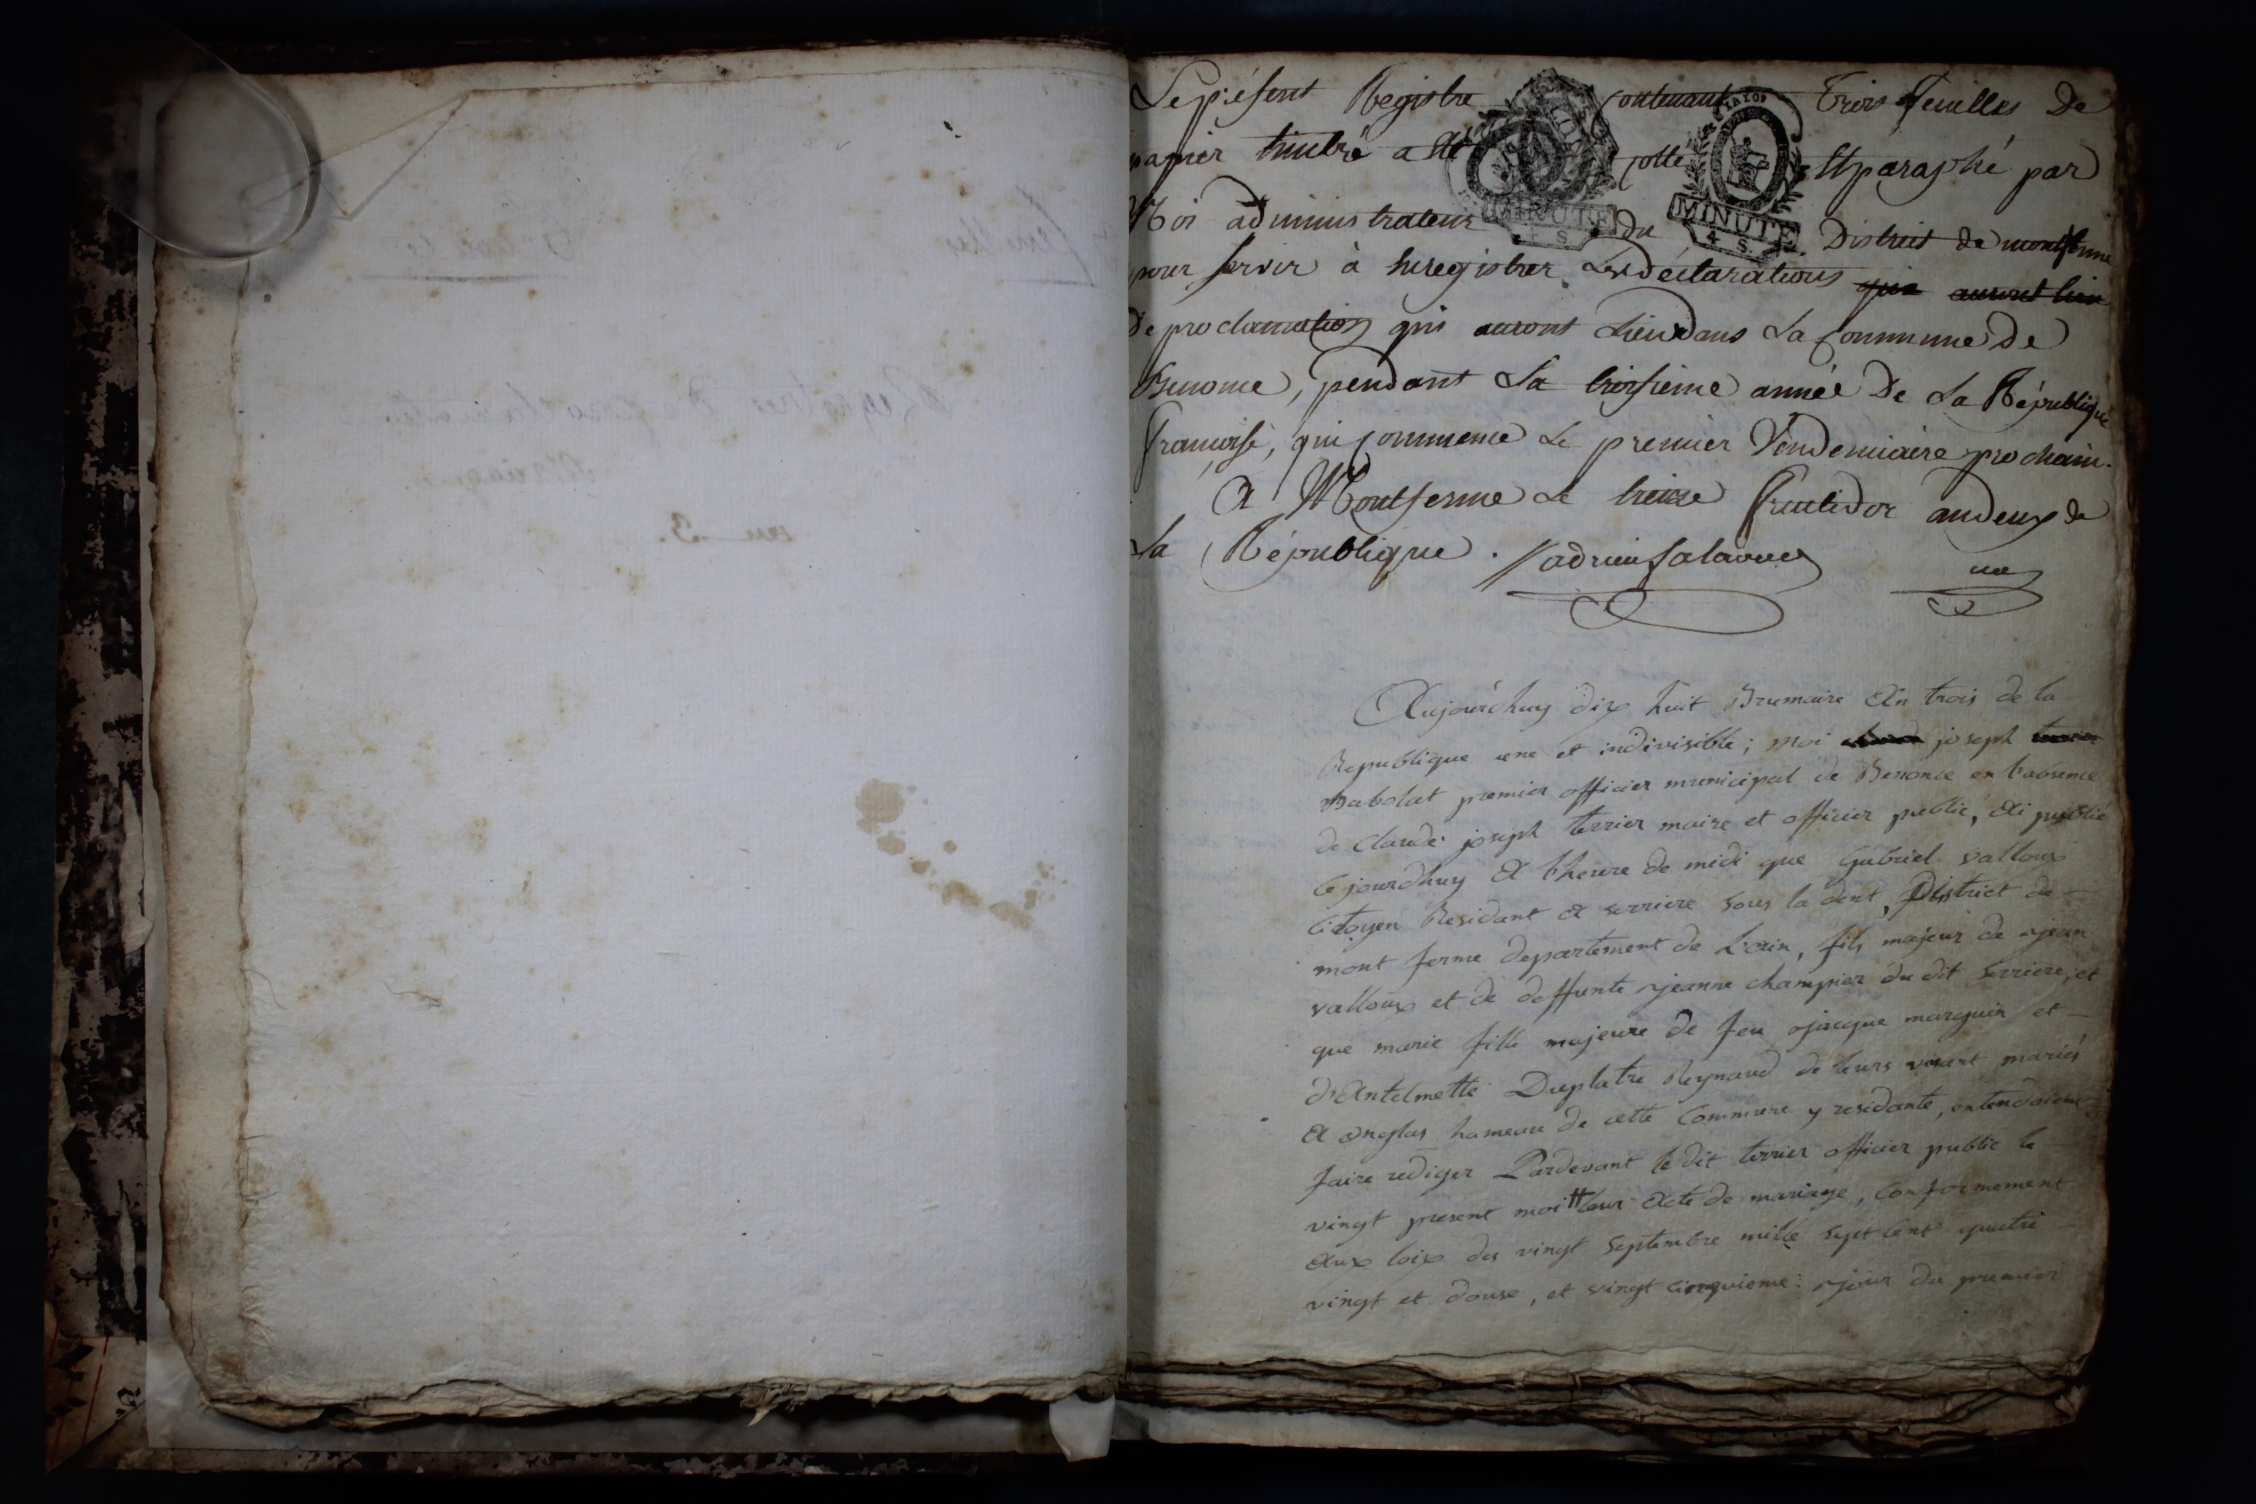 Le présent Registre contenant trois feuilles de
papier timbré a été cotté et paraphé par
Moi administrateur du District de montferme
pour servir à Enregistrer Les déclarations qui auront lieu
de proclamation qui auront Lieu dans La Commune De
Benonce, pendant La troisieme année De La République
françoise, qui Commence Le premier Vendemiaire prochain.
A Montferme Le treize Fructidor an deux de
La République . adrien Salavue
MINUTE
4 S.
MINUTE
4 S.
Aujourdhuy dix huit Brumaire An trois de la
Republique une et indivisible ; moi joseph
Babolat premier officier municipal de Benonce en l'absence
de Claude joseph terrier maire et officier public, Ai publié
Cejourdhuy A l'heure de midi que Gabriel valloux
Citoyen Residant A serriere sous la dent, District de
mont ferme departement de L'ain, fils majeur de jean
valloux et de deffunte jeanne champier du dit serriere, et
que marie fille majeure de feu jacque marguin et
d'Antelmette Duplatre Reynaud de leurs vivant mariés
A onglas hameau de cette Commune y residante, entendaient
faire rediger Pardevant le dit terrier officier public le
vingt present moi leur Acte de mariage, Conformement
Aux loix des vingt Septembre mille Sept Cent quatre
vingt et douse, et vingt Cinquieme jour du premier